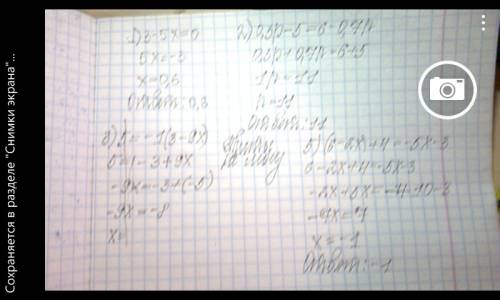 Сохраняется в разделе "Снимки экрана"...
1) 3-5x=0
5x=-3
x=0,6
Ответ: 0,3
2) 0,3p-5=6-0,7p
0,3p+0,7p=6+5
1p=11
p=11
Ответ: 11
3) 5=-1(3-9x)
5=-3+9x
-9x=-3+(-5)
-9x=-8
x=
5) (6-2x)+4=-5x-3
6-2x+4=-5x-3
-2x+5x=-4-10-3
-7x=7
x=-1
Ответ: -1